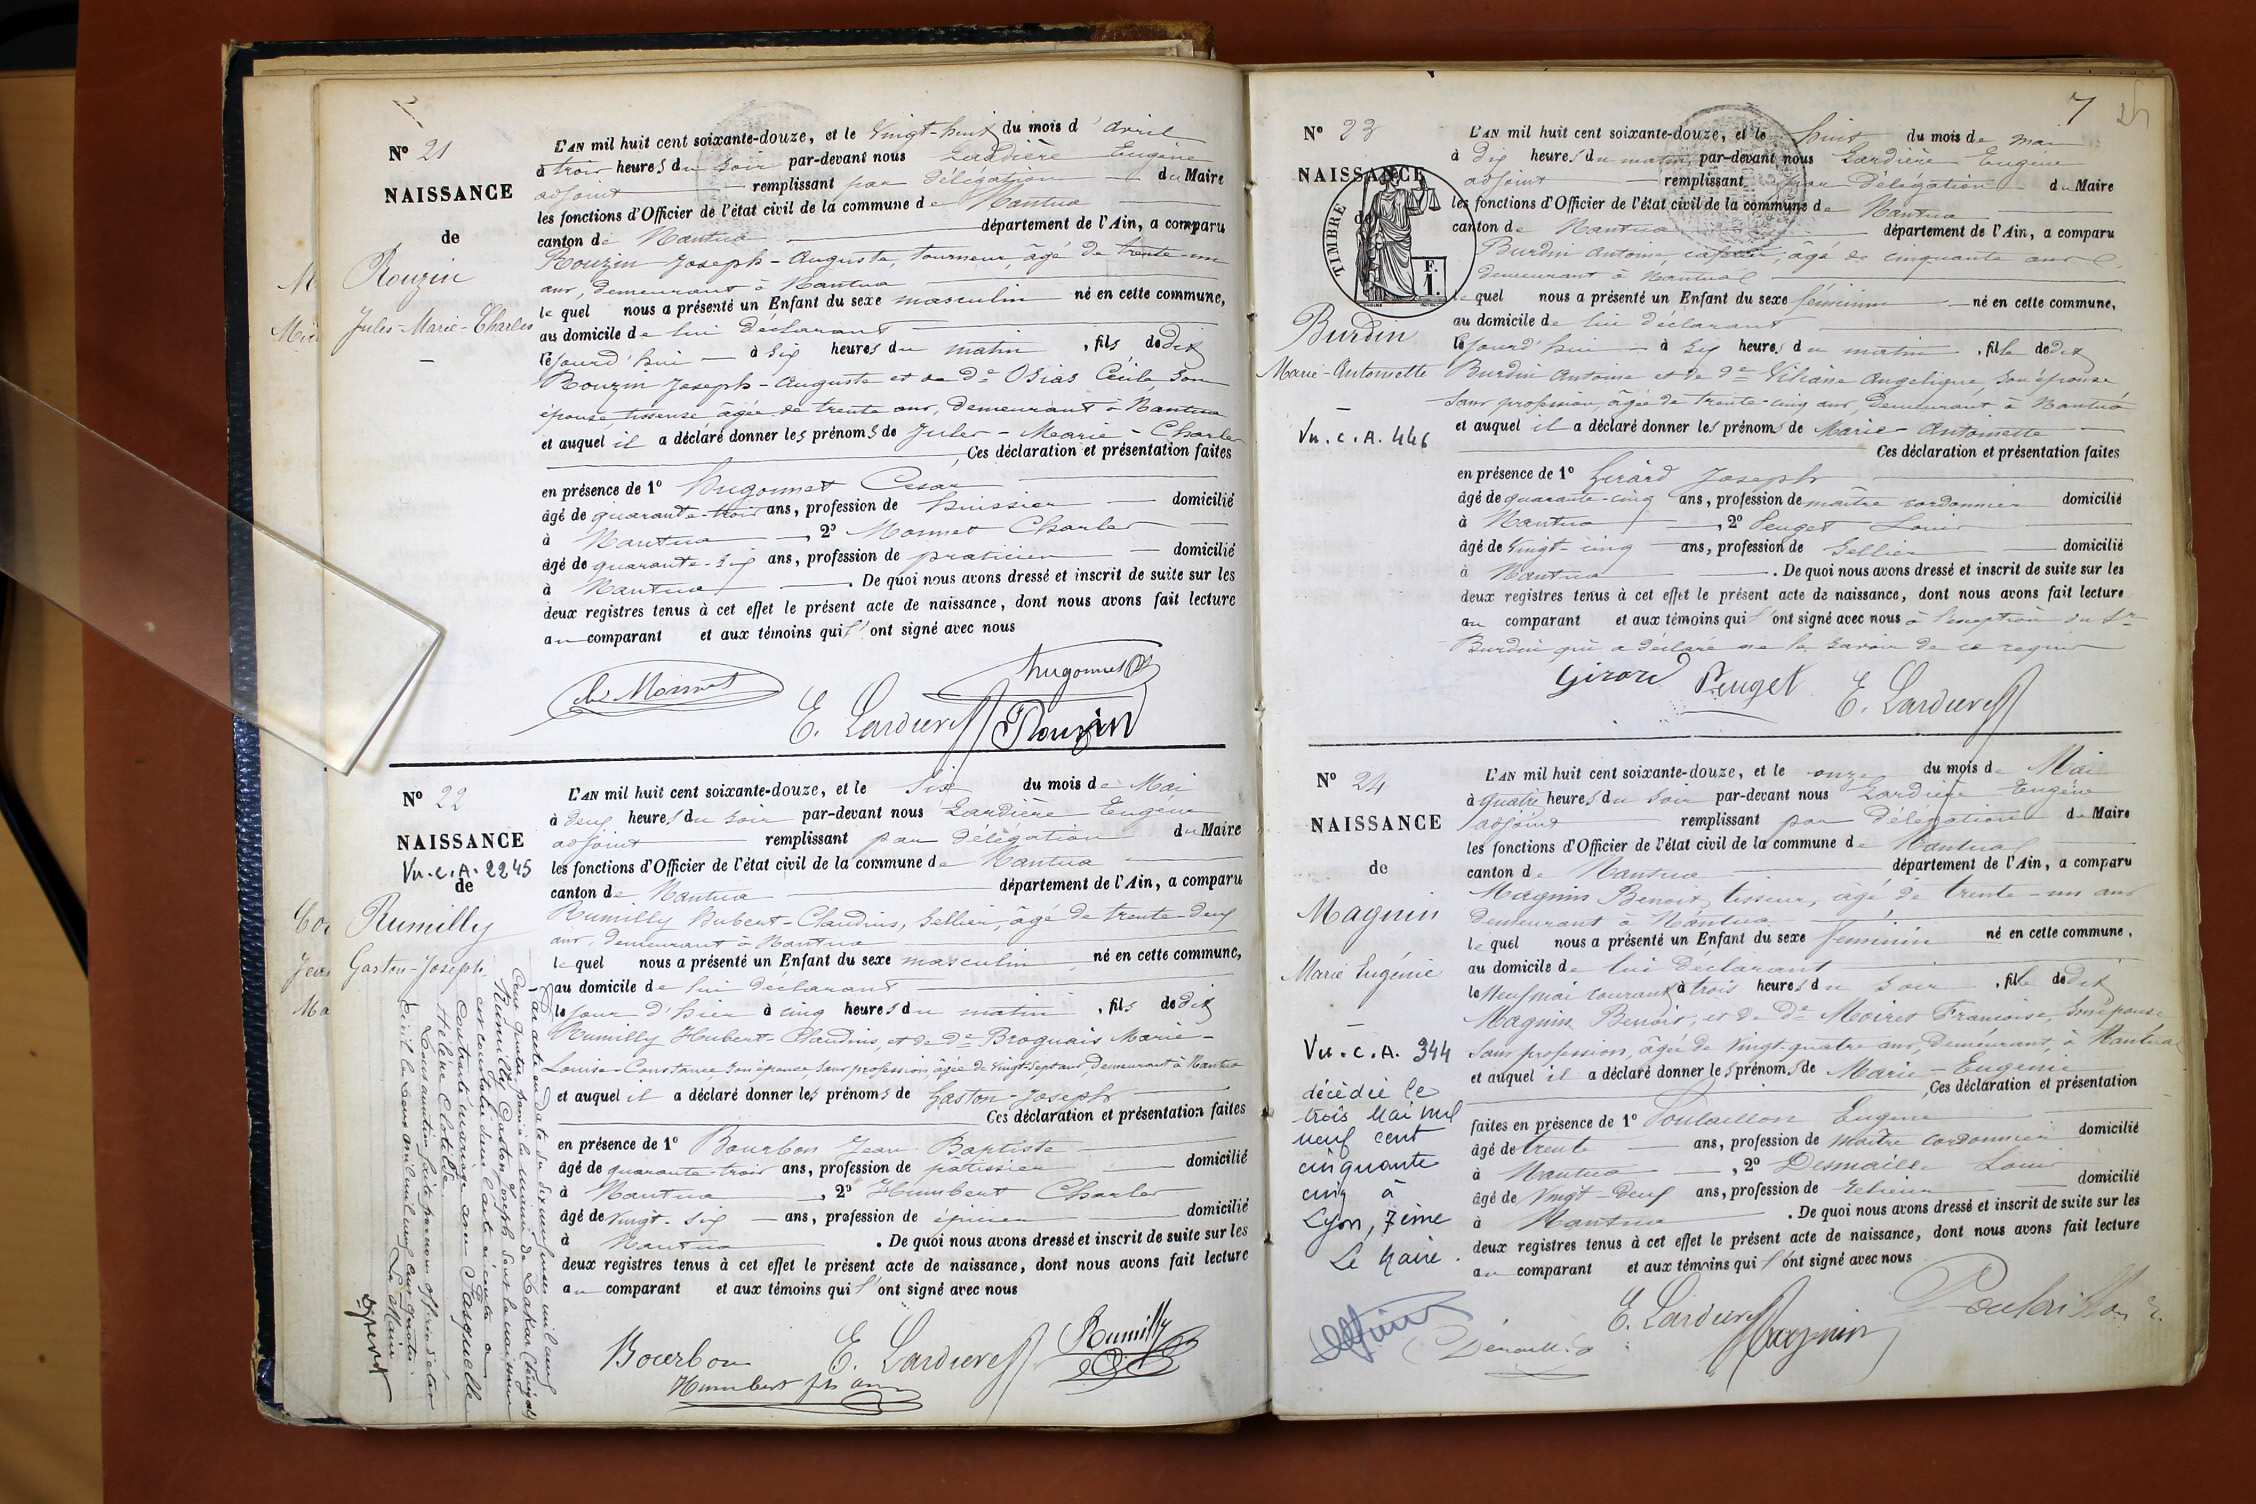 N° 21
NAISSANCE
de
Rouzin
Jules-Marie-Charles
L'AN mil huit cent soixante-douze, et le Vingt-huit du mois d'avril
à trois heures du soir par-devant nous Lardière Eugène
adjoint remplissant par délégation du Maire
les fonctions d'Officier de l'état civil de la commune de Nantua
canton de Nantua département de l'Ain, a comparu
Rouzin Joseph-Auguste, tourneur, âgé de trente-un
ans, demeurant à Nantua
lequel nous a présenté un Enfant du sexe masculin né en cette commune,
au domicile de lui déclarant
le jourd'hui à six heures du matin, fils de dit
Rouzin Joseph-Auguste et de De Osias Cécile, son
épouse, tisseuse, âgée de trente ans, demeurant à Nantua
et auquel il a déclaré donner les prénoms de Jules-Marie-Charles
Ces déclaration et présentation faites
en présence de 1° Hugonnet César
âgé de quarante-trois ans, profession de huissier domicilié
à Nantua, 2° Monnet Charles
âgé de quarante-six ans, profession de praticien domicilié
à Nantua. De quoi nous avons dressé et inscrit de suite sur les
deux registres tenus à cet effet le présent acte de naissance, dont nous avons fait lecture
au comparant et aux témoins qui l'ont signé avec nous
Ch. Monnet Hugonnet
E. Lardière Rouzin
N° 22
NAISSANCE
Vu.C.A. 2245
de
Rumilly
Gaston-Joseph
L'AN mil huit cent soixante-douze, et le Six du mois de Mai
à deux heures du soir par-devant nous Lardière Eugène
adjoint remplissant par délégation du Maire
les fonctions d'Officier de l'état civil de la commune de Nantua
canton de Nantua département de l'Ain, a comparu
Rumilly Hubert-Claudius, Sellier, âgé de trente-deux
ans, demeurant à Nantua
lequel nous a présenté un Enfant du sexe masculin né en cette commune,
au domicile de lui déclarant
le jour d'hier à cinq heures du matin, fils de dit
Rumilly Hubert-Claudius, et de De Broquais Marie-
Louise-Constance son épouse, sans profession, âgée de vingt-sept ans, demeurant à Nantua
et auquel il a déclaré donner les prénoms de Gaston-Joseph
Ces déclaration et présentation faites
en présence de 1° Bourbon Jean Baptiste
âgé de quarante-trois ans, profession de patissier domicilié
à Nantua, 2° Humbert Charles
âgé de vingt-six ans, profession de épicier domicilié
à Nantua. De quoi nous avons dressé et inscrit de suite sur les
deux registres tenus à cet effet le présent acte de naissance, dont nous avons fait lecture
au comparant et aux témoins qui l'ont signé avec nous
Bourbon E. Lardière Rumilly
Humbert fils
Par acte en date du dix neuf mil neuf
cent quatre passé à la mairie de Dakar (Sénégal)
Rumilly Gaston Joseph dont la naissance
est constatée dans l'acte ci contre a
contracté mariage avec Fasquelle
Hélène Clotilde
Sous mention faite par nous officier d'état
civil le mil neuf cent quatre
Le Maire
7
N° 23
NAISSANCE
de
TIMBRE
F.
1.
Burdin
Marie-Antoinette
Vu.C.A. 446
L'AN mil huit cent soixante-douze, et le huit du mois de mai
à dix heures du matin, par-devant nous Lardière Eugène
adjoint remplissant par délégation du Maire
les fonctions d'Officier de l'état civil de la commune de Nantua
canton de Nantua département de l'Ain, a comparu
Burdin Antoine, âgé de cinquante ans
demeurant à Nantua
lequel nous a présenté un Enfant du sexe féminin né en cette commune,
au domicile de lui déclarant
le jourd'hui à six heures du matin, fille de dit
Burdin Antoine et de De Viliane Angélique, son épouse
sans profession, âgée de trente-cinq ans, demeurant à Nantua
et auquel il a déclaré donner les prénoms de Marie-Antoinette
Ces déclaration et présentation faites
en présence de 1° Girard Joseph
âgé de quarante-cinq ans, profession de maître cordonnier domicilié
à Nantua, 2° Peuget Louis
âgé de vingt-cinq ans, profession de Sellier domicilié
à Nantua. De quoi nous avons dressé et inscrit de suite sur les
deux registres tenus à cet effet le présent acte de naissance, dont nous avons fait lecture
au comparant et aux témoins qui l'ont signé avec nous à l'exception du Sr
Burdin qui a déclaré ne le savoir de ce requis
Girard Peuget E. Lardière
N° 24
NAISSANCE
de
Magnin
Marie Eugénie
Vu.C.A. 344
décédée le
trois Mai mil
neuf cent
cinquante
cinq à
Lyon, 7ème
Le Maire.
L'AN mil huit cent soixante-douze, et le onze du mois de Mai
à quatre heures du soir par-devant nous Lardière Eugène
adjoint remplissant par délégation du Maire
les fonctions d'Officier de l'état civil de la commune de Nantua
canton de Nantua département de l'Ain, a comparu
Magnin Benoit, tisseur, âgé de trente-un ans
demeurant à Nantua
lequel nous a présenté un Enfant du sexe féminin né en cette commune,
au domicile de lui déclarant
le neuf mai courant à trois heures du soir, fille de dit
Magnin Benoit, et de De Moiret Françoise, son épouse
sans profession, âgée de vingt-quatre ans, demeurant à Nantua
et auquel il a déclaré donner les prénoms de Marie-Eugénie
Ces déclaration et présentation
faites en présence de 1° Poulaillon Eugène
âgé de trente ans, profession de maître cordonnier domicilié
à Nantua, 2° Desmaille Louis
âgé de vingt-deux ans, profession de relieur domicilié
à Nantua. De quoi nous avons dressé et inscrit de suite sur les
deux registres tenus à cet effet le présent acte de naissance, dont nous avons fait lecture
au comparant et aux témoins qui l'ont signé avec nous
E. Lardière Poulaillon
Magnin